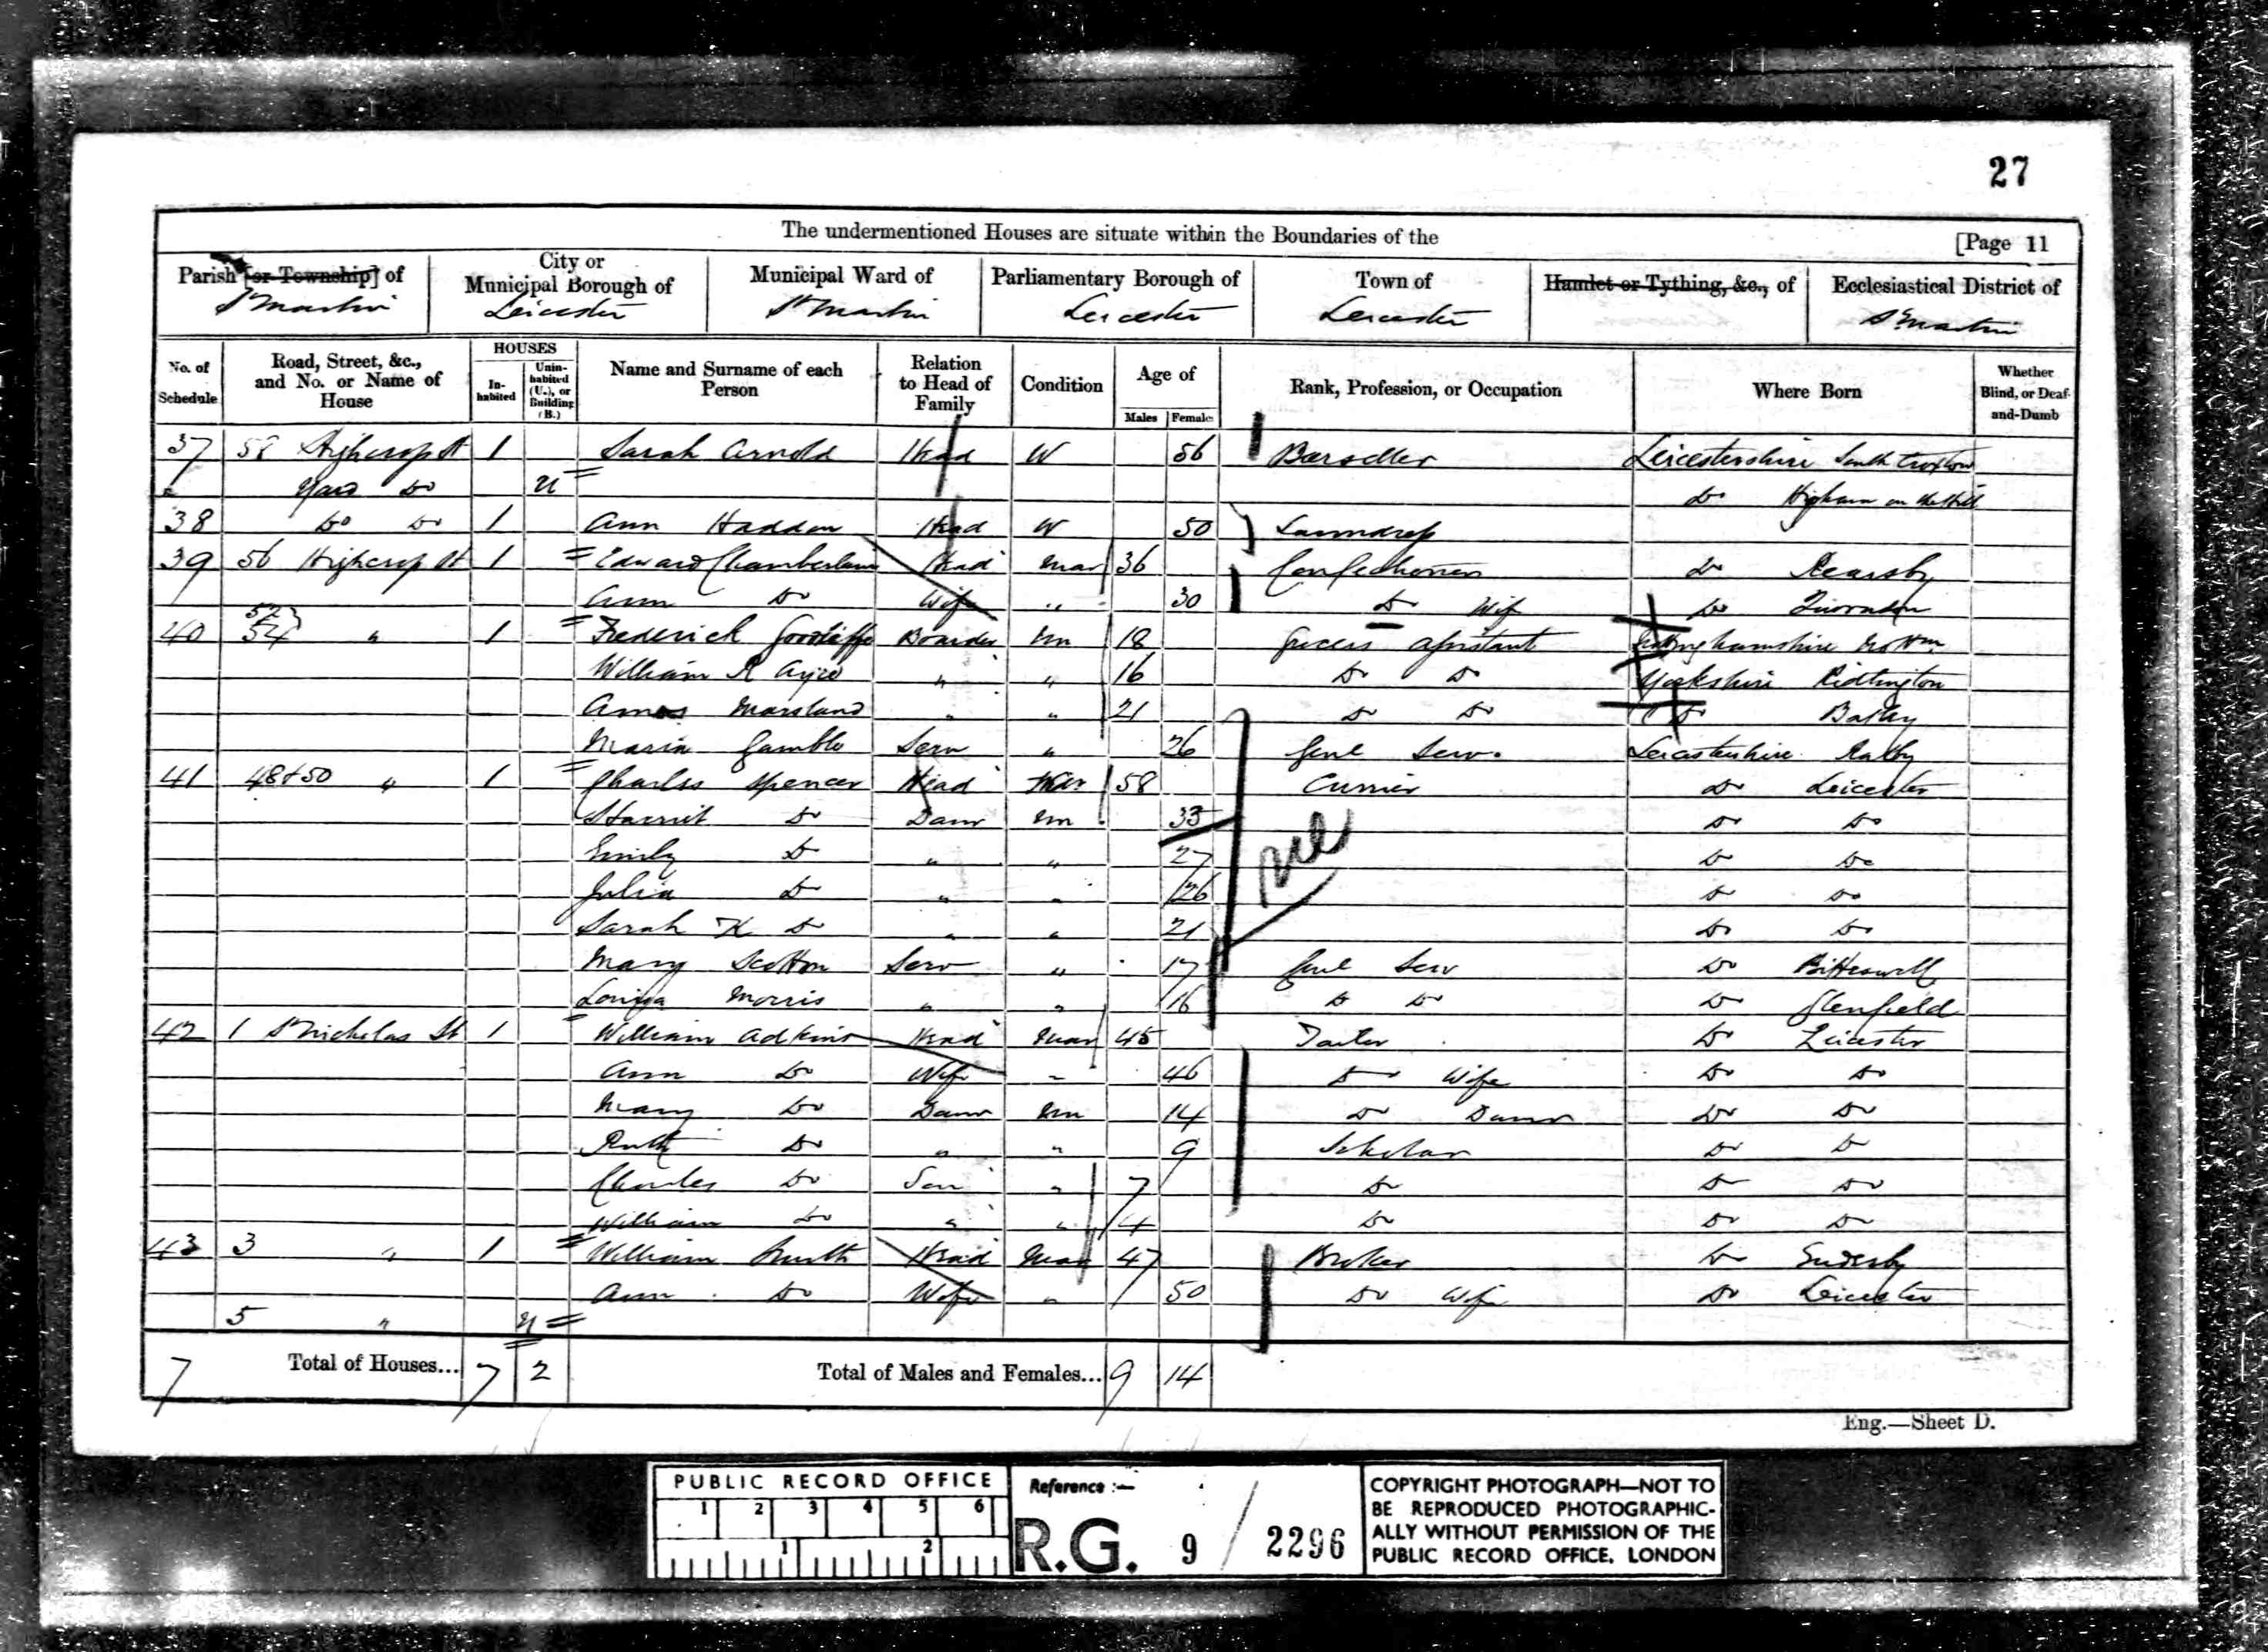 27
The undermentioned Houses are situate within the Boundaries of the
[Page 11
Parish [or Township] of
City or Municipal Borough of
Municipal Ward of
Parliamentary Borough of
Town of
Hamlet or Tything, &c., of
Ecclesiastical District of
St Martin Leicester St Martin Leicester Leicester St Martin
No. of Schedule
Road, Street, &c., and No. or Name of House
HOUSES
In-habited
Unin-habited (U.), or Building (B.)
Name and Surname of each Person
Relation to Head of Family
Condition
Age of
Males Females
Rank, Profession, or Occupation
Where Born
Whether Blind, or Deaf-and-Dumb
37 58 Highcross St 1 Sarah Arnold Head W 56 Leicestershire South Croxton
Yard Do U
Do Higham on the Hill
38 Do Do 1 Ann Haddon Head W 50 Laundress
39 56 Highcross St 1 Edward Chamberlain Head Mar 36 Confectioner Do Rearsby
Ann Do Wife " 30 Do Wife Do
40 52 54 " 1 Frederick Boarder Un 18 Grocers Assistant Nottinghamshire Nottm
William R " " 16 Do Do Yorkshire
Amos Marsland " " 21 Do Do Do Batley
Maria Gamble Serv " 26 Genl Serv. Leicestershire Ratby
41 48 & 50 " 1 Charles Spencer Head 58 Currier Do Leicester
Harriet Do Daur Un 33 Do Do
Emily Do " " 27 Do Do
Julia Do " " 26 Do Do
Sarah Do " " 21 Do Do
Mary Scotton Serv " 17 Genl Serv Do Bitteswell
Louisa Morris " " 16 Do Do Do Glenfield
42 1 St Nicholas St 1 William Adkins Head Mar 45 Tailor Do Leicester
Ann Do Wife " 46 Do Wife Do Do
Mary Do Daur Un 14 Do Daur Do Do
Ruth Do " " 9 Scholar Do Do
Charles Do Son " 7 Do Do Do
William Do " " 4 Do Do Do
43 3 " 1 William Smith Head Mar 47 Broker Do Enderby
Ann Do Wife " 50 Do Wife Do Leicester
5 " U
7 Total of Houses... 7 2 Total of Males and Females... 9 14
Eng.—Sheet D.
PUBLIC RECORD OFFICE
1 2 3 4 5 6
1 2
Reference :-
R.G. 9 / 2296
COPYRIGHT PHOTOGRAPH—NOT TO
BE REPRODUCED PHOTOGRAPHIC-
ALLY WITHOUT PERMISSION OF THE
PUBLIC RECORD OFFICE, LONDON